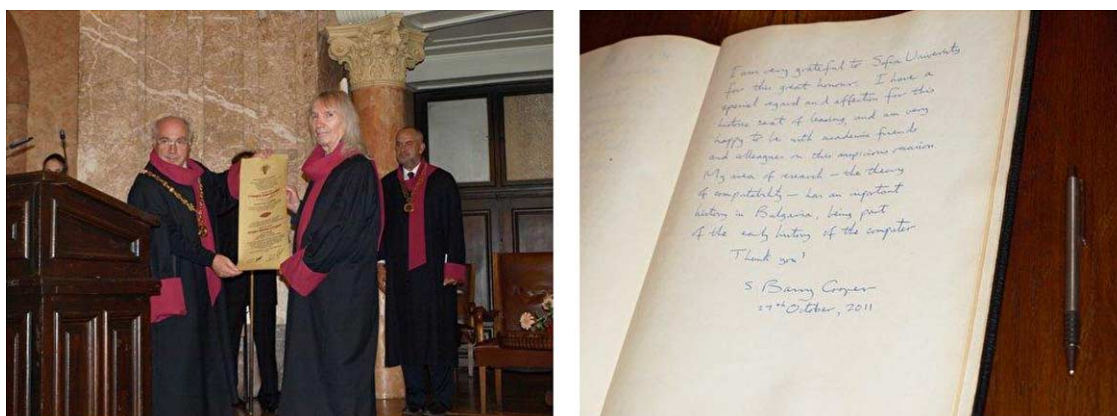 I am very grateful to Sofia University
for this great honour. I have a
special regard and affection for this
historic seat of learning, and am very
happy to be with academic friends
and colleagues on this auspicious occasion.
My area of research – the theory
of computability – has an important
history in Bulgaria, being part
of the early history of the computer
Thank you!
S Barry Cooper
27th October, 2011